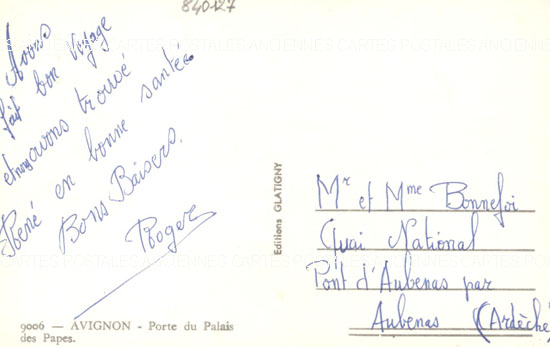 840127
Avons
fait bon voyage
et nous avons trouvé
René en bonne santé.
Bons Baisers.
Roger
9006 — AVIGNON - Porte du Palais
des Papes.
Editions GLATIGNY
Mr et Mme Bonnefoi
Quai National
Pont d'Aubenas par
Aubenas (Ardèche
CARTES POSTALES ANCIENNES CARTES POSTALES ANCIENNES